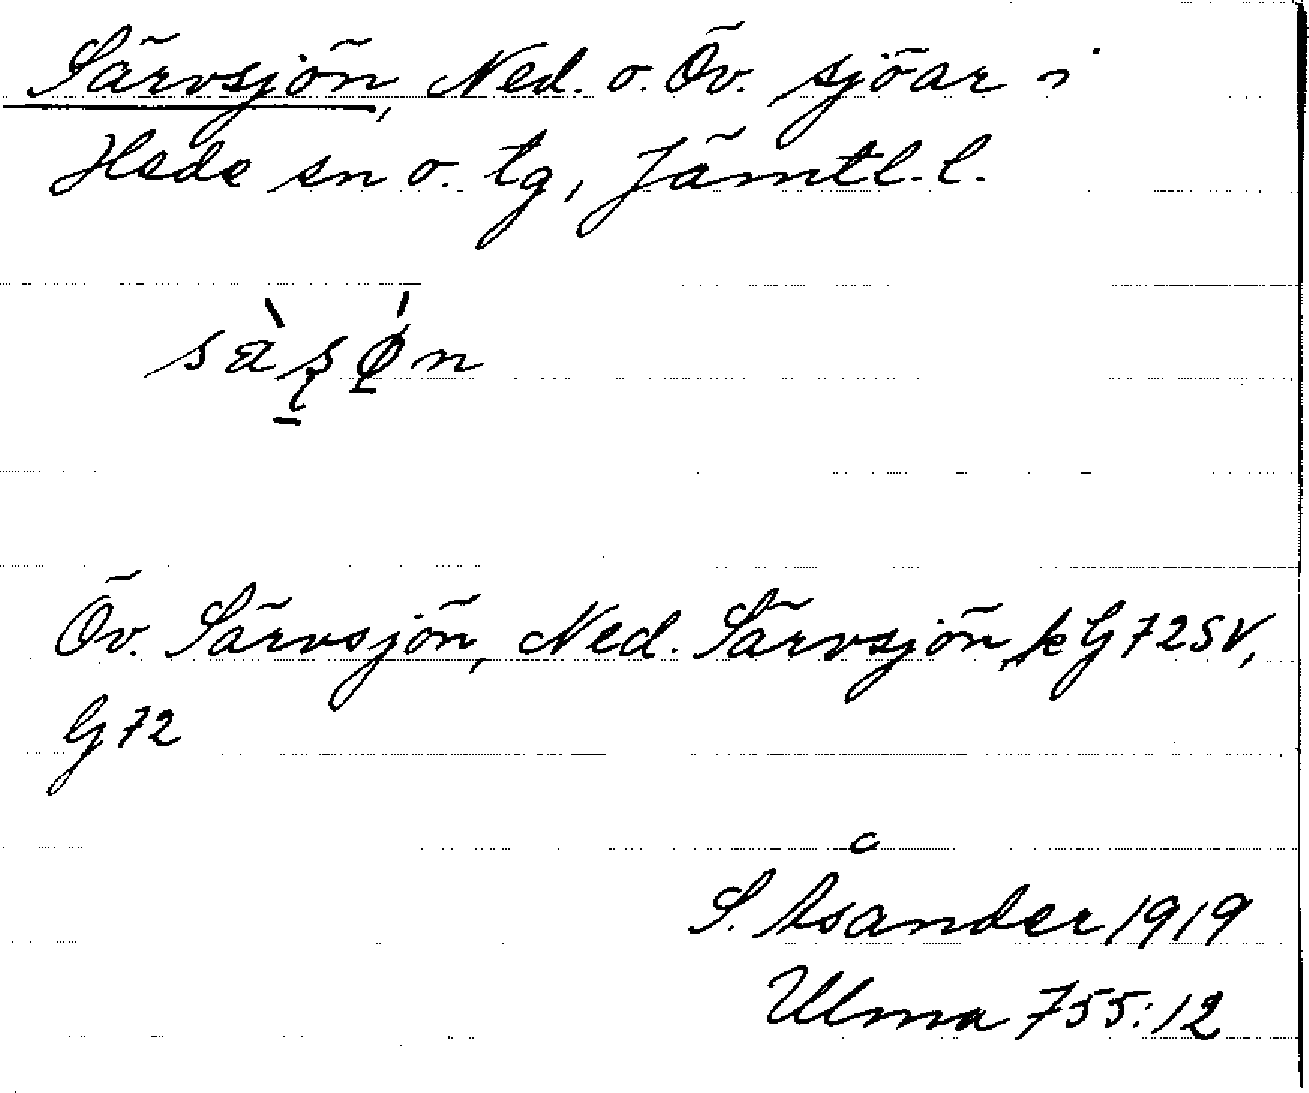 Särvsjön, Ned. o. Öv. sjöar i
Hede sn o. tg, Jämtl. l.
Öv. Särvsjön, Ned. Särvsjön, k G72SV,
G72
S. Åsander 1919
Ulma 755:12